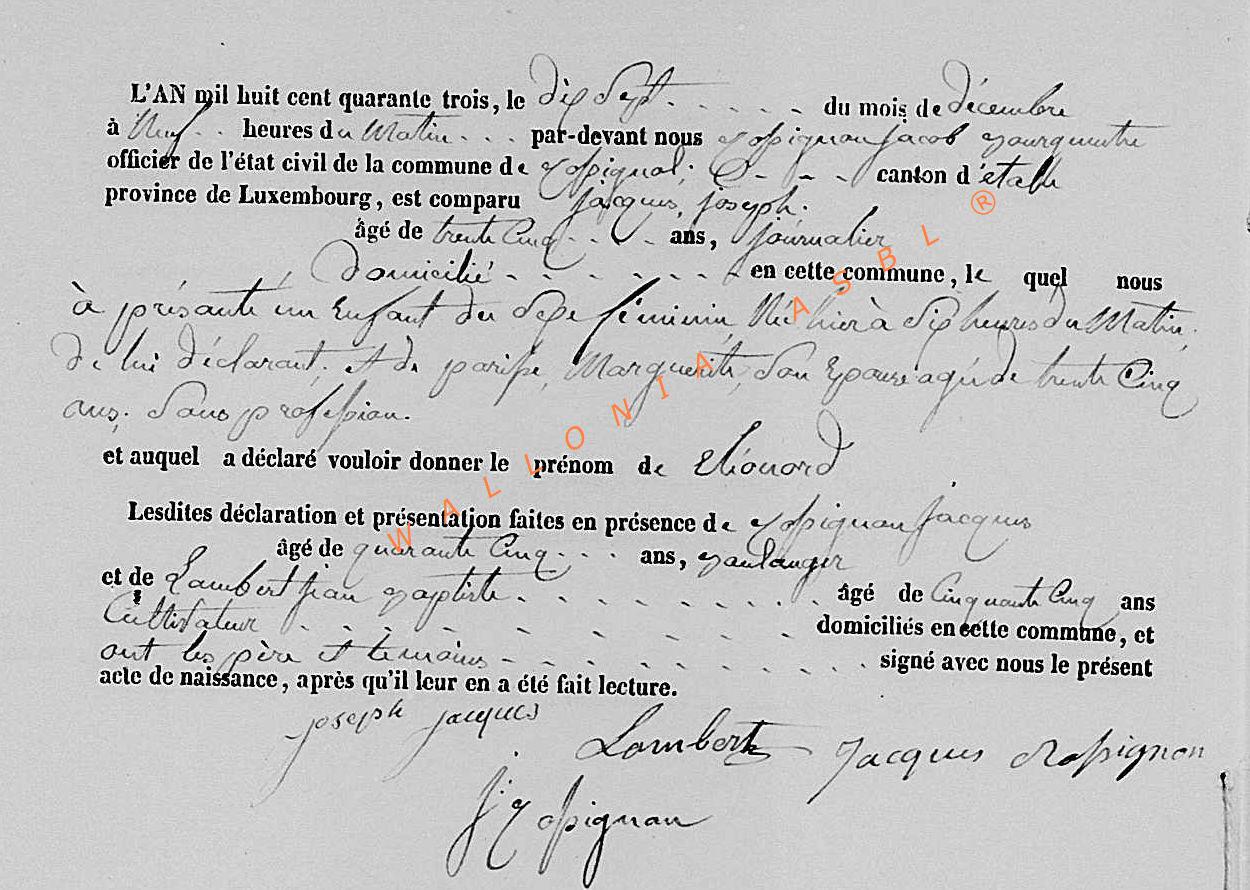 L'AN mil huit cent quarante trois, le dix Sept . . . . . du mois de décembre
à Neuf . . heures du Matin . . . par-devant nous Rossignon Jacob Bourguemtre
officier de l'état civil de la commune de Rossignol; - - - canton d'étalle
province de Luxembourg, est comparu Jacques, joseph.
âgé de trente Cinq - - - ans, journalier
Domicilié - - - - - - - en cette commune, le quel nous
à présanté un Enfant du Sexe féminin, Née hier à Six heures du Matin,
de lui déclarant; et de Marguerite, Son Epouse agée de trente Cinq
ans; Sans profession.
et auquel a déclaré vouloir donner le prénom de Eléonord
Lesdites déclaration et présentation faites en présence de Rossignon Jacques
âgé de quarante Cinq - - - ans, Boulanger
et de Lambert jean Baptiste . - - - - - - - - âgé de Cinquante Cinq ans
Cultivateur - - - - - - - - - domiciliés en cette commune, et
ont les père et temoins - - - - - - - - - signé avec nous le présent
acte de naissance, après qu'il leur en a été fait lecture.
joseph jacques
Lambert Jacques Rossignon
J: Rossignon
WALLONIA ASBL ®